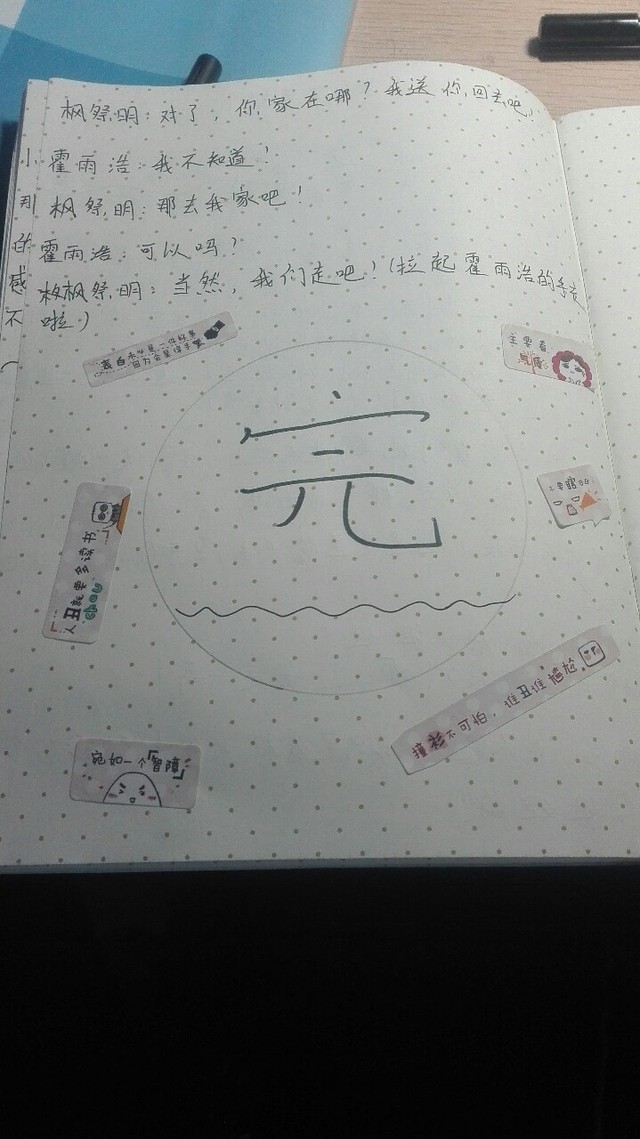 枫祭明：对了，你家在哪？我送你回去吧！
霍雨浩：我不知道！
枫祭明：那去我家吧！
霍雨浩：可以吗？
枫祭明：当然，我们走吧！（拉起霍雨浩的手走
啦）
小
那
的
感
不
主要看
气质
完
人丑就要多读书
撞衫不可怕，谁丑谁尴尬
宛如一个「智障」